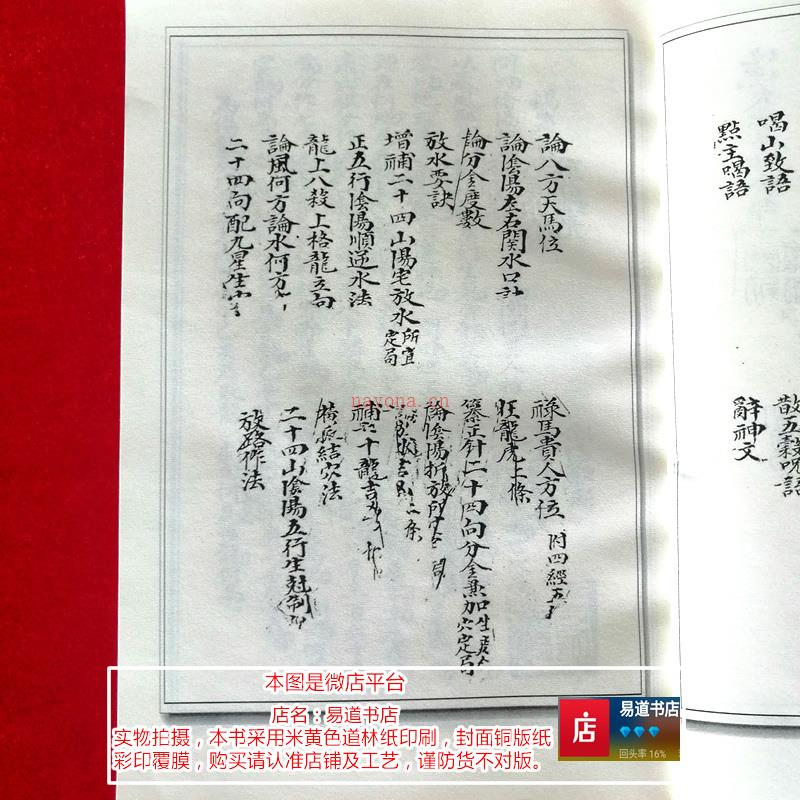 喝山致語
點主喝語
散五穀呪語
辭神文
論八方天馬位
論陰陽左右関水口訣
論分金度數
放水要訣
增補二十四山陽宅放水所宜定局
正五行陰陽順逆水法
龍上八殺上格龍立向
論風何方論水何方
二十四向配九星生
祿馬貴人方位 附四經五
旺龍虎上條
纂正針二十四向分金兼加
論陰陽折放所
二條
補
十龍吉
結穴法
二十四山陰陽五行生尅制
放路作法
nayona.cn
本图是微店平台
店名：易道书店
实物拍摄，本书采用米黄色道林纸印刷，封面铜版纸
彩印覆膜，购买请认准店铺及工艺，谨防货不对版。
店
易道书店
回头率 16%